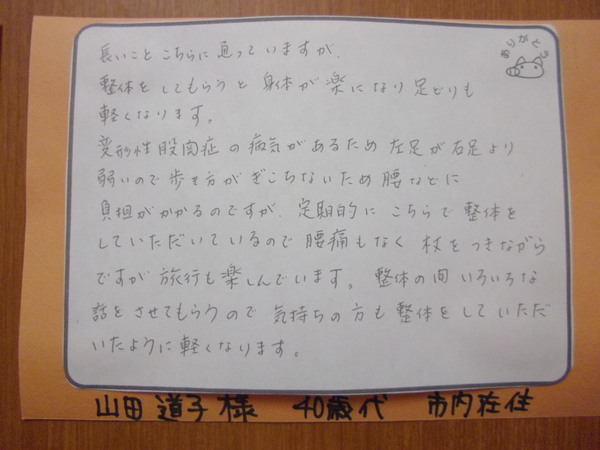 ありがとう
長いこと こちらに 通っていますが、
整体を してもらうと 身体が 楽になり 足どりも
軽くなります。
変形性股関症の病気があるため 左足が右足より
弱いので 歩き方が ぎこちないため 腰などに
負担がかかるのですが、定期的に こちらで 整体を
していただいているので 腰痛もなく 杖をつきながら
ですが 旅行も楽しんでいます。 整体の間 いろいろな
話をさせてもらうので 気持ちの方も 整体をしていただ
いたように軽くなります。
山田 道子様 40歳代 市内在住